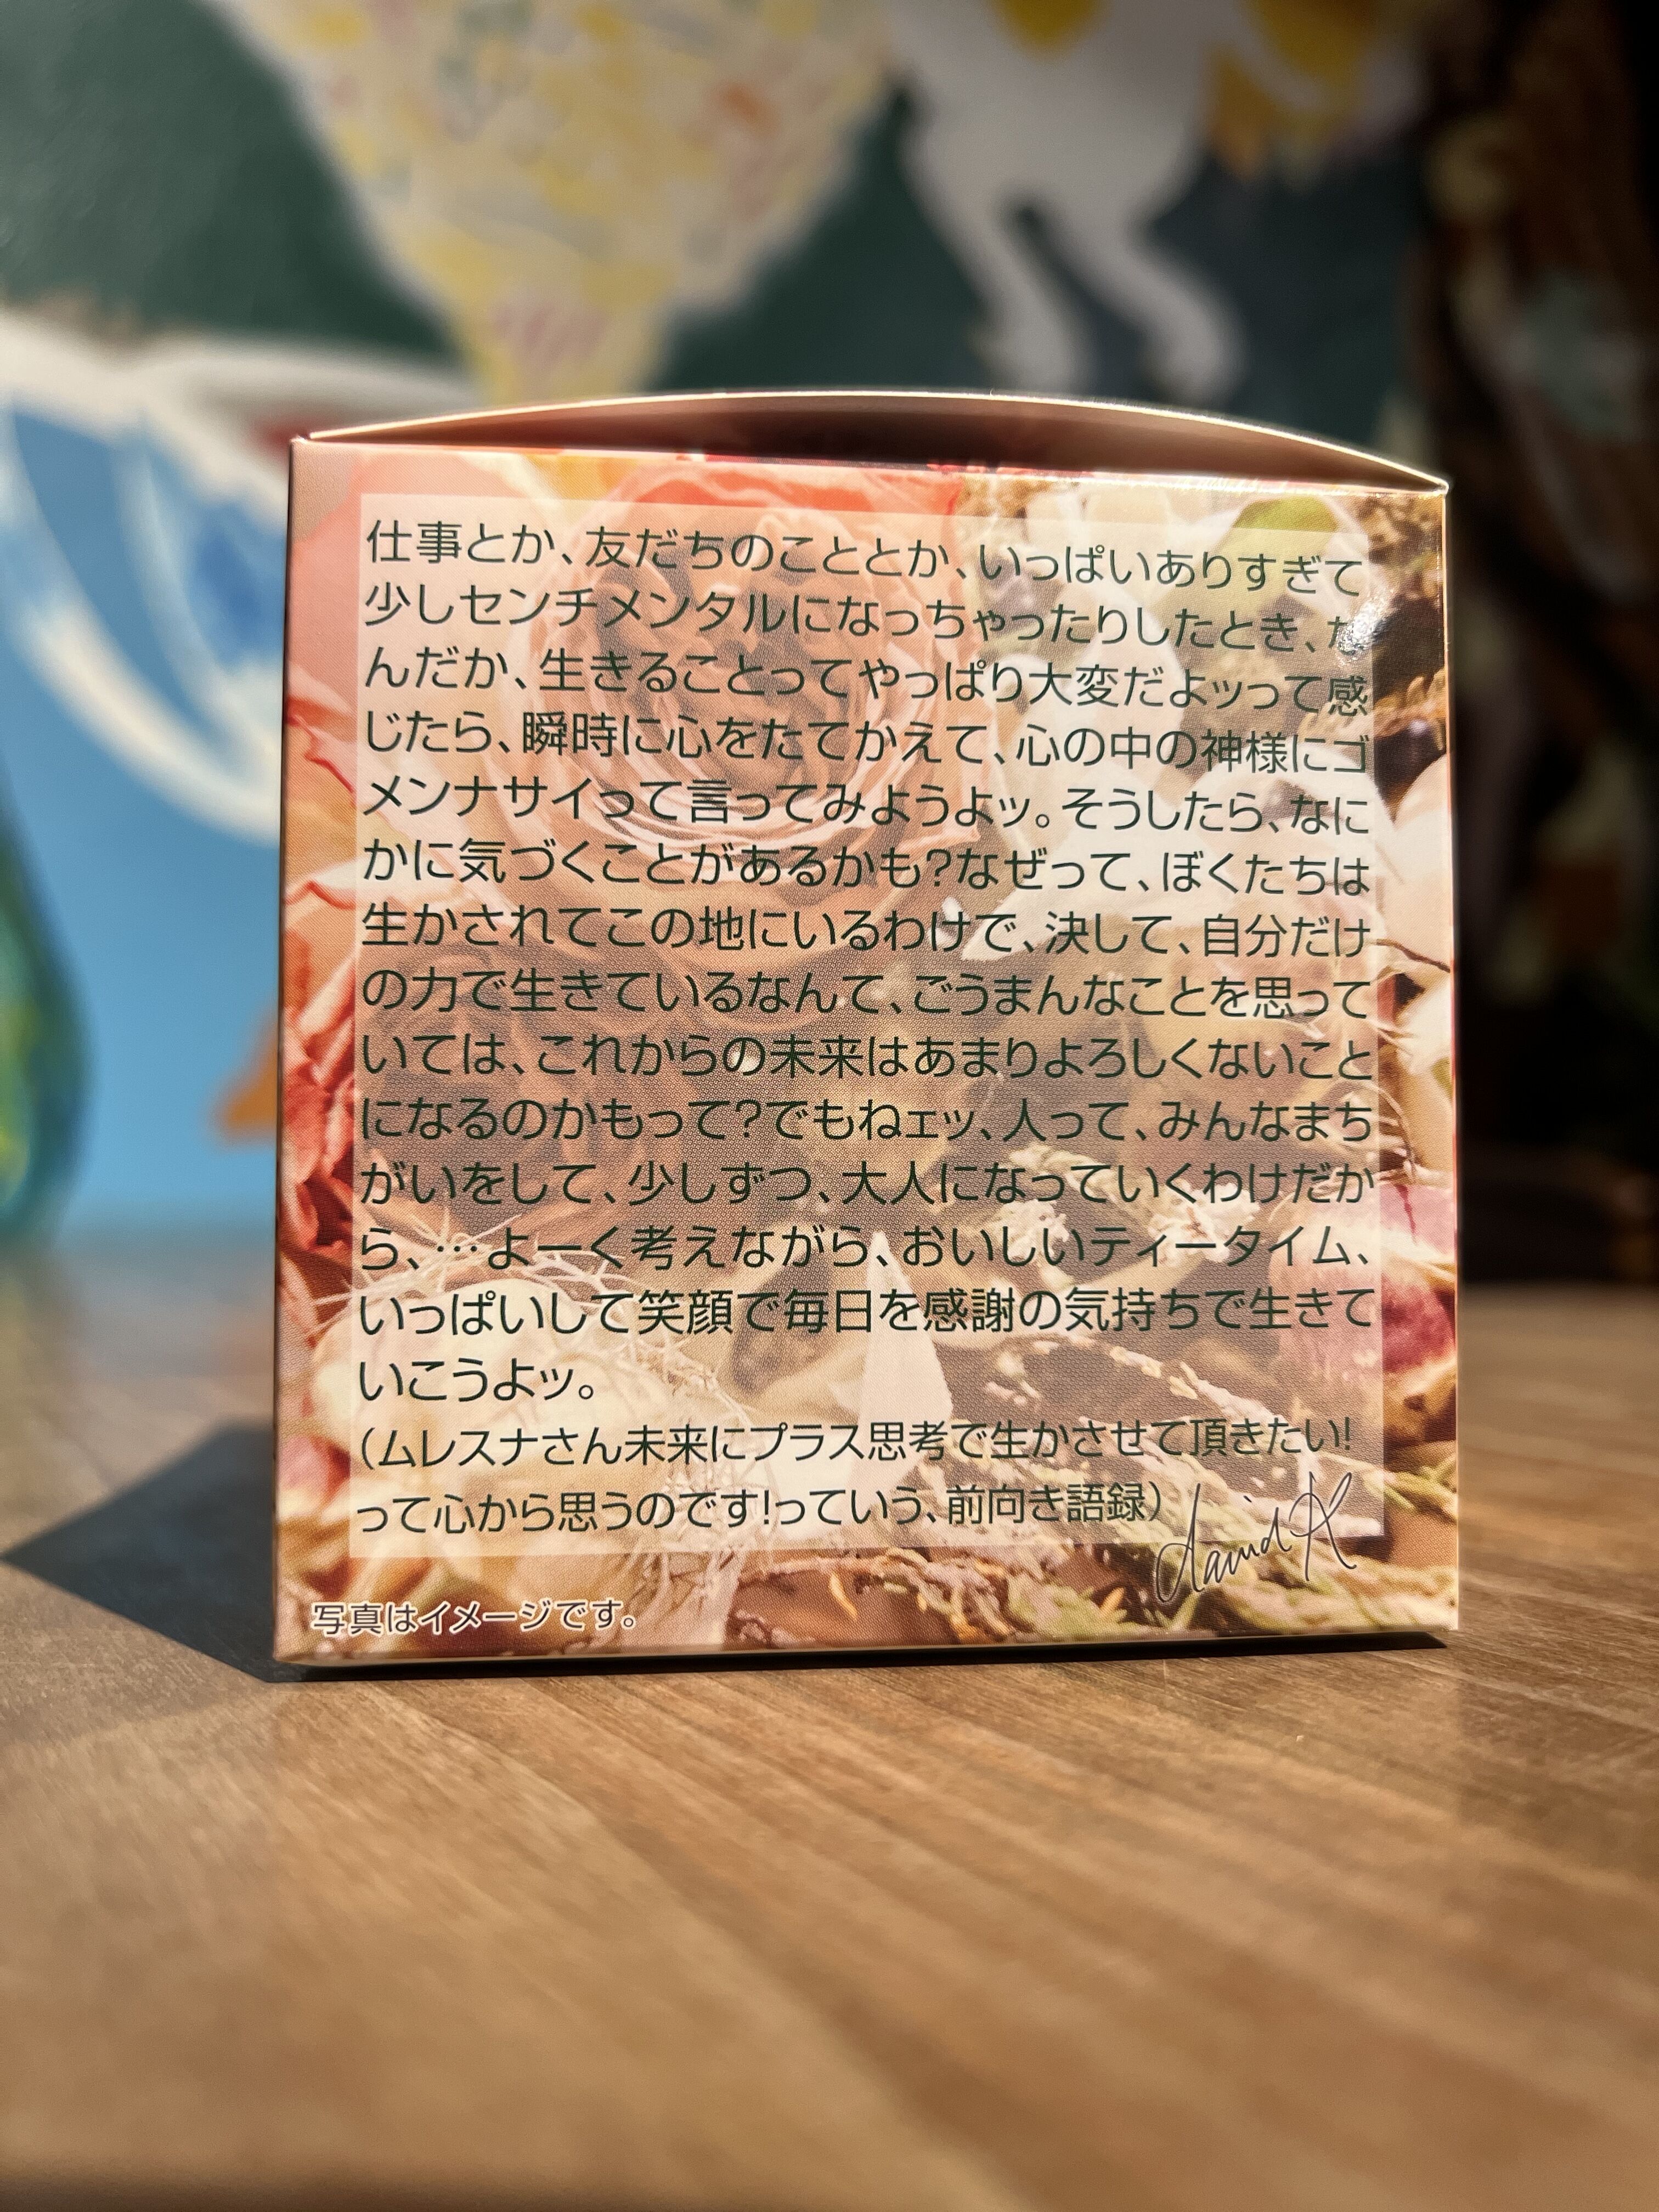 仕事とか、友だちのこととか、いっぱいありすぎて
少しセンチメンタルになっちゃったりしたとき、な
んだか、生きることってやっぱり大変だよッって感
じたら、瞬時に心をたてかえて、心の中の神様にゴ
メンナサイって言ってみようよッ。そうしたら、なに
かに気づくことがあるかも?なぜって、ぼくたちは
生かされてこの地にいるわけで、決して、自分だけ
の力で生きているなんて、ごうまんなことを思って
いては、これからの未来はあまりよろしくないこと
になるのかもって?でもねェッ、人って、みんなまち
がいをして、少しずつ、大人になっていくわけだか
ら、…よーく考えながら、おいしいティータイム、
いっぱいして笑顔で毎日を感謝の気持ちで生きて
いこうよッ。
(ムレスナさん未来にプラス思考で生かさせて頂きたい!
って心から思うのです!っていう、前向き語録)
david K
写真はイメージです。